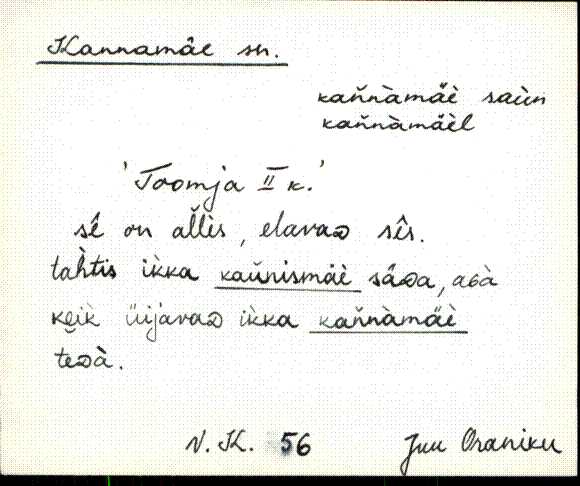 Kannamäe sn.
kaňnàmäè saùn
kaňnàmäèl
'Toomja II k.'
sê on aľlès, elavaᴅ sês.
tahtis ìkka kaùnismäè sâᴅa, aʙà
keik üijavaᴅ ìkka kaňnàmäè
teᴅà.
V. K. 56
Juu Oraniku